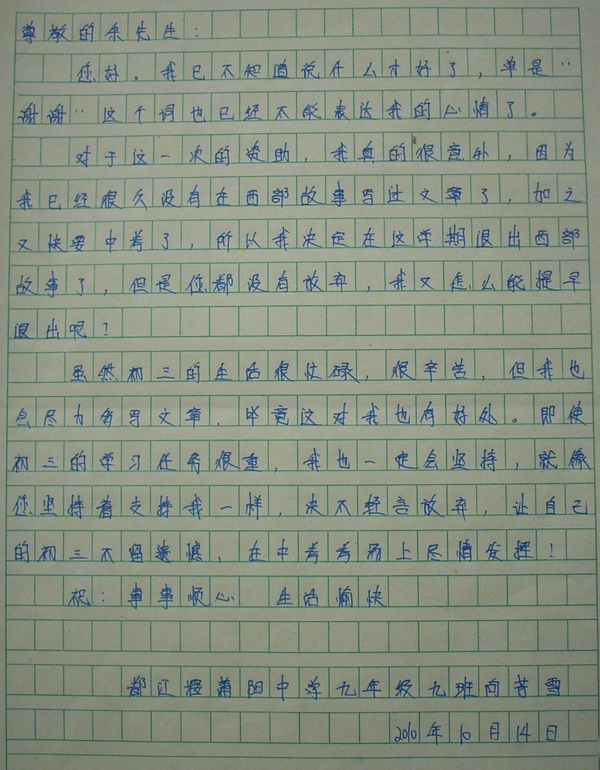 尊敬的余先生：
您好。我已不知道说什么才好了，单是“
谢谢”这个词也已经不能表达我的心情了。
对于这一次的资助，我真的很意外，因为
我已经很久没有在西部故事写过文章了，加之
又快要中考了，所以我决定在这学期退出西部
故事了，但是您都没有放弃，我又怎么能提早
退出呢？
虽然初三的生活很忙碌，很辛苦，但我也
会尽力多写文章，毕竟这对我也有好处。即使
初三的学习任务很重，我也一定会坚持，就像
您坚持着支持我一样，决不轻言放弃，让自己
的初三不留遗憾，在中考考场上尽情发挥！
祝：事事顺心 生活愉快
都江堰蒲阳中学九年级九班向芳雪
2010年10月14日